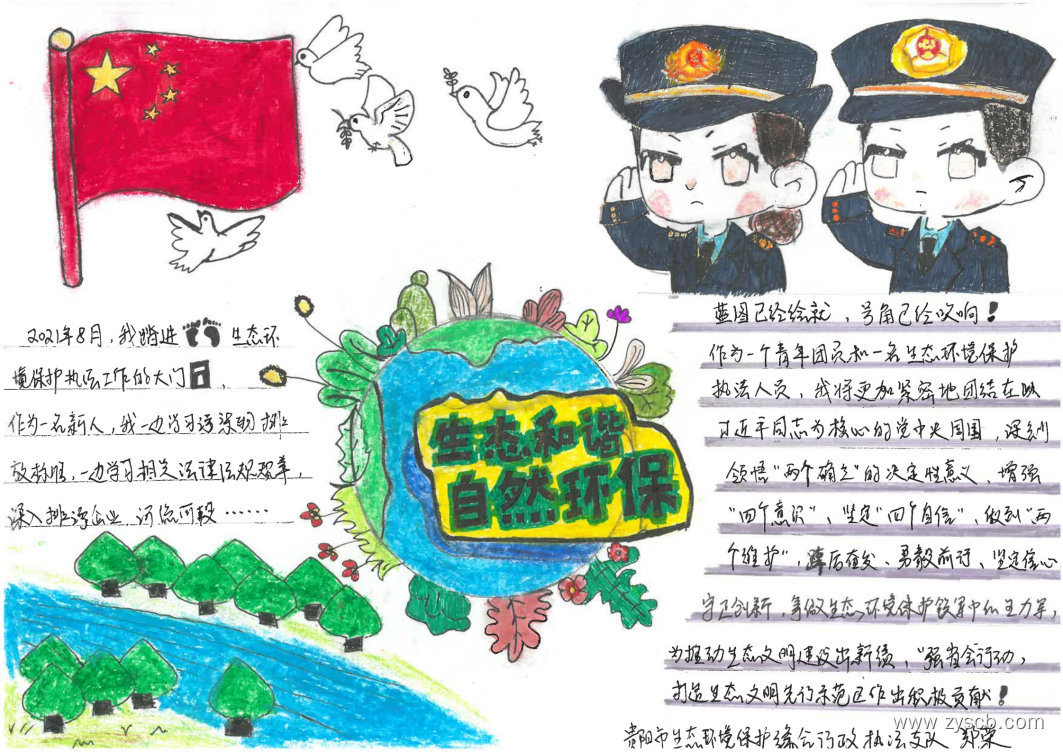 2021年8月，我踏进生态环
境保护执法工作的大门，
作为一名新人，我一边学习污染物排
放标准，一边学习相关法律法规规章，
深入排污企业、河流河段……
生态和谐
自然环保
蓝图已经绘就，号角已经吹响！
作为一个青年团员和一名生态环境保护
执法人员，我将更加紧密地团结在以
习近平同志为核心的党中央周围，深刻
领悟"两个确立"的决定性意义，增强
"四个意识"、坚定"四个自信"，做到"两
个维护"，踔厉奋发、勇毅前行、坚定信心
守正创新，争做生态环境保护铁军中的主力军，
为推动生态文明建设出新绩，"强省会行动，
打造生态文明先行示范区作出积极贡献！
贵阳市生态环境保护综合行政执法支队
www.zyscb.com